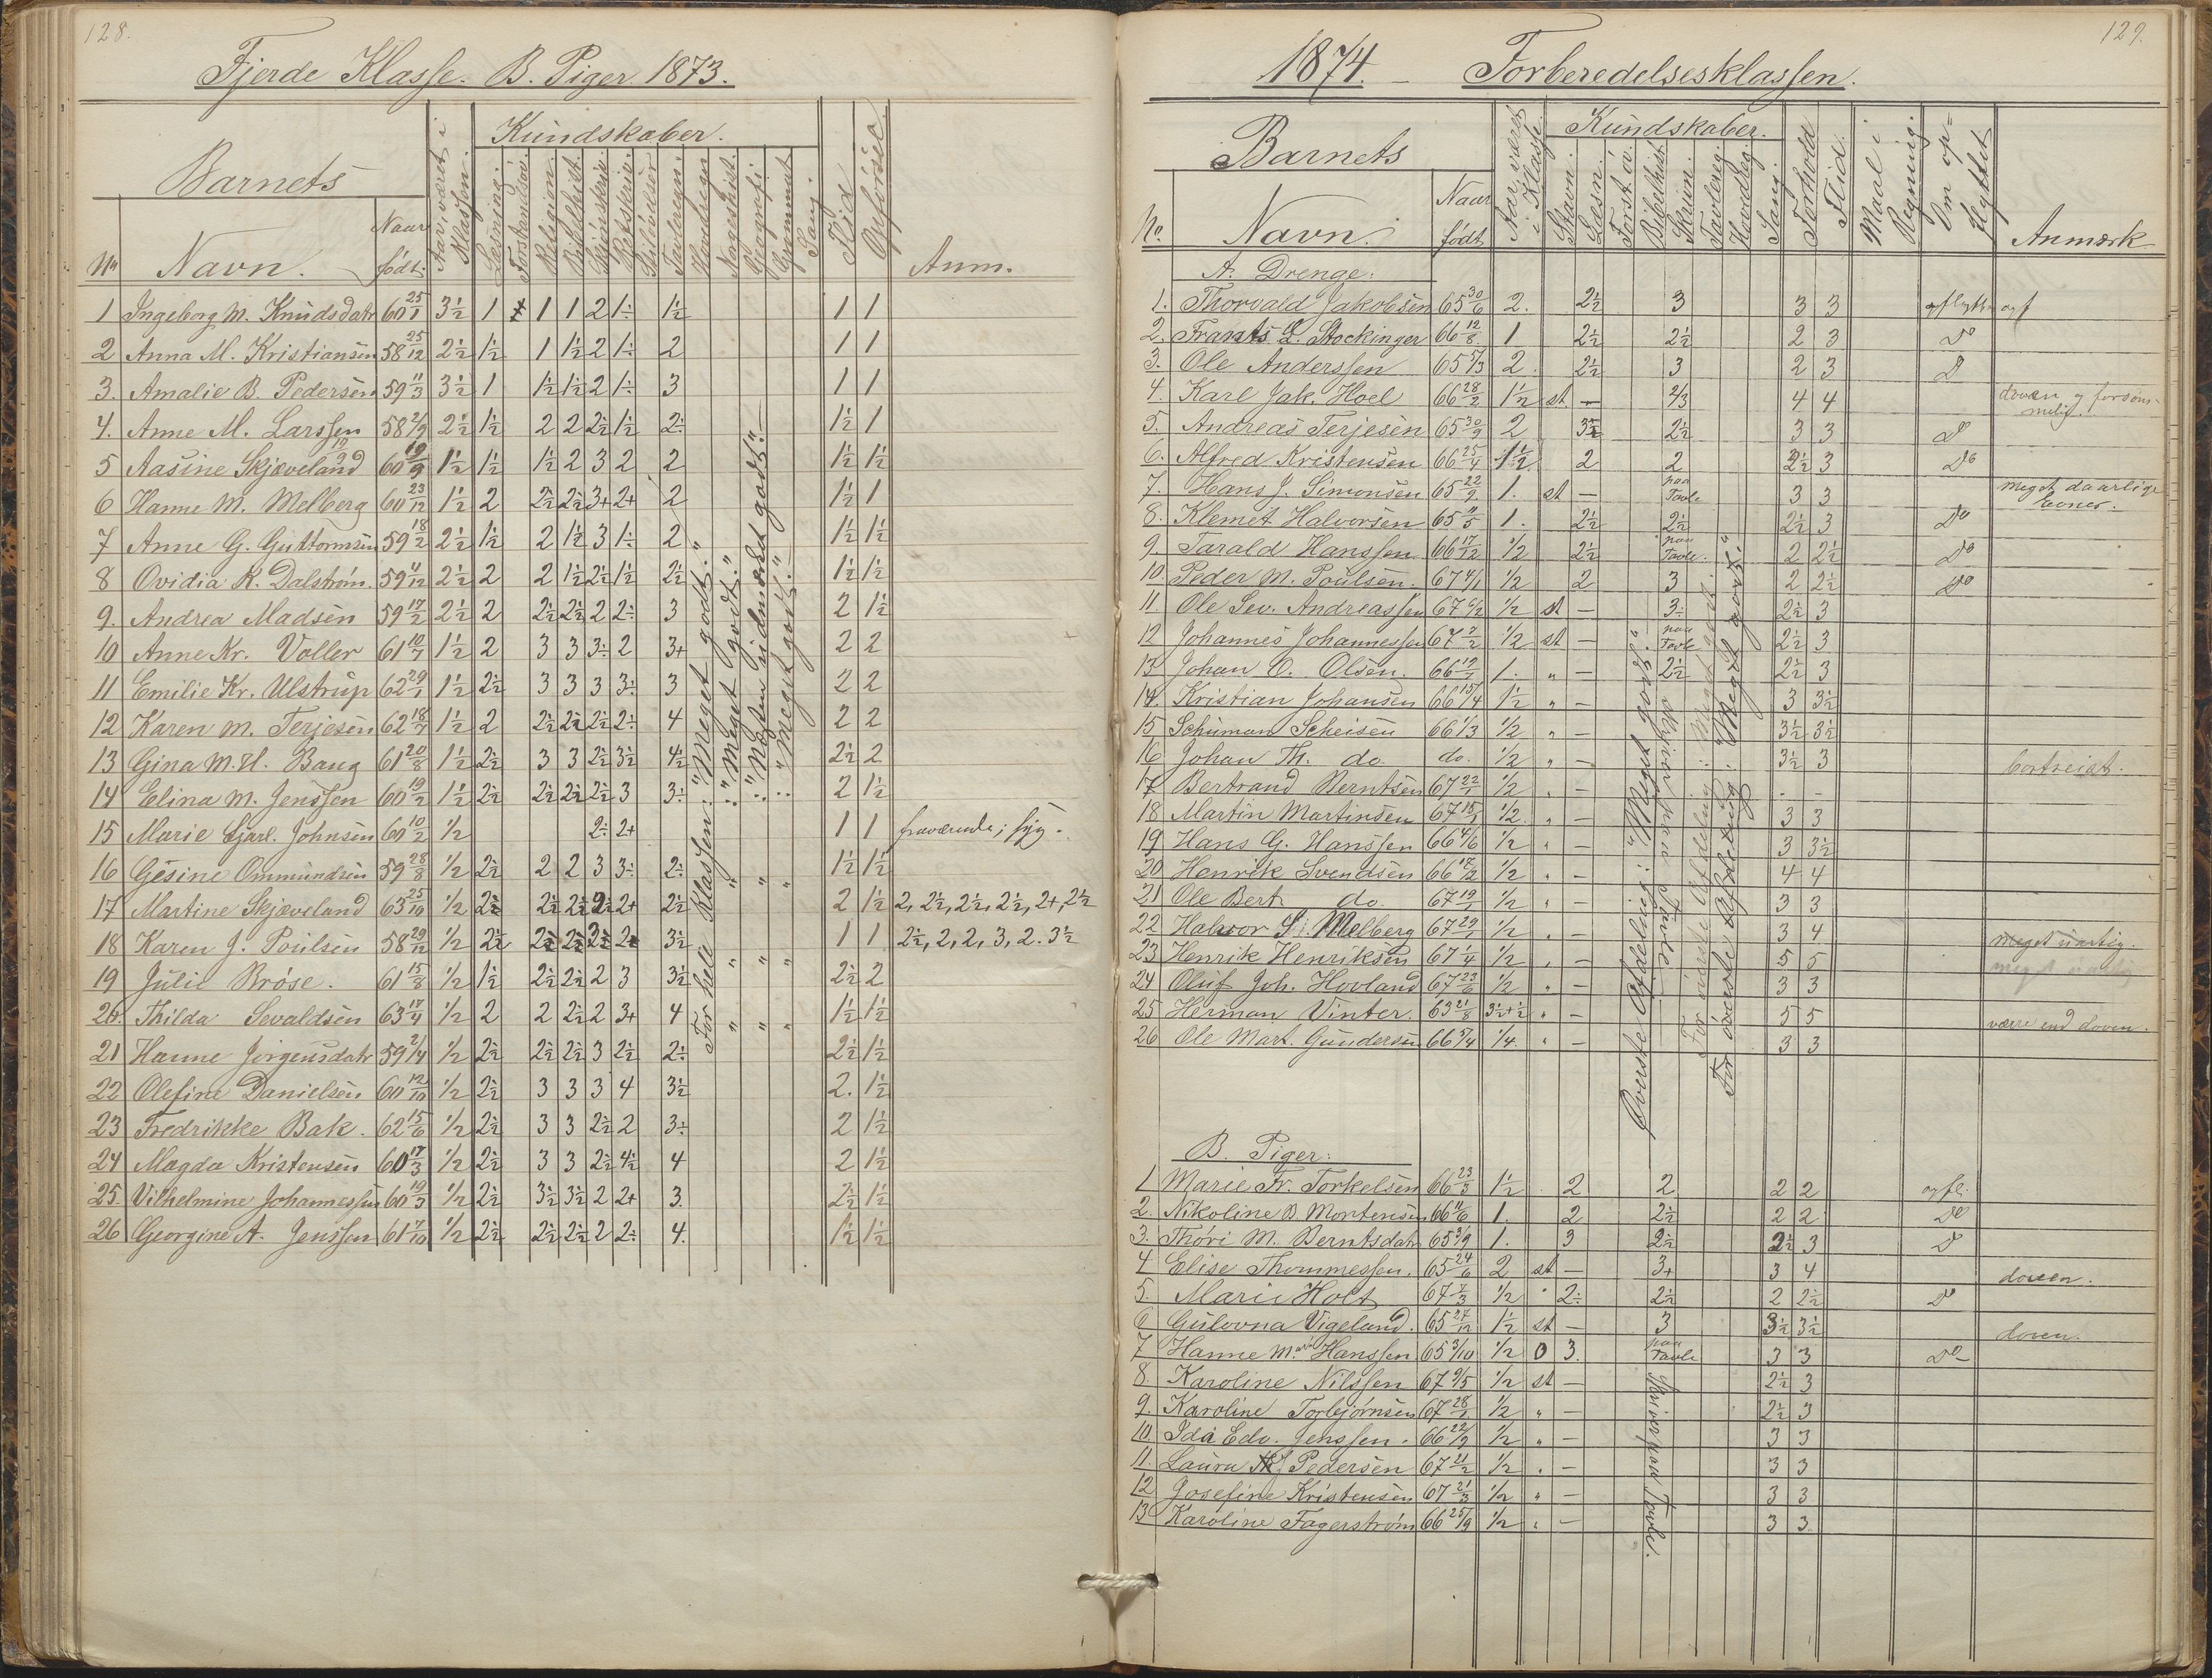 128.
Fjerde Klasse. B. Piger 1873.
Barnets
No
Navn.
Naar født.
Aar været i Klassen.
Kundskaber.
Læsning.
Religion.
Bibelhist.
Skjönskriv.
Retskriv.
Tavleregn.
Hovedregn.
Norgeshist.
Geografi.
Sang.
Flid
Opførsel.
Anm.
1 Ingeborg M. Knudsdatr 60 25/1 3½ 1 1 1 2 1÷ 1½ 1 1
2 Anna M. Kristiansen 58 25/12 2½ 1½ 1 1½ 2 1÷ 2 1 1
3. Amalie B. Pedersen 59 11/3 3½ 1 1½ 1½ 2 1÷ 3 1 1
4. Anne M. Larssen 58 2/9 2½ 1½ 2 2 2½ 1½ 2÷ 1½ 1
5 Aasine Skjæveland 60 19/9 1½ 1½ 1½ 2 3 2 2 1½ 1½
6 Hanne M. Melberg 60 23/12 1½ 2 2½ 2½ 3+ 2+ 2 1½ 1
7 Anne G. Guttormsen 59 18/2 2½ 1½ 2 1½ 3 1÷ 2 1½ 1½
8 Ovidia K. Dalstrøm. 59 11/12 2½ 2 2 1½ 2½ 1½ 2½ 1½ 1½
9. Andrea Madsen 59 17/2 2½ 2 2½ 2½ 2 2÷ 3 2 1½
10 Anne Kr. Voller 61 10/7 1½ 2 3 3 3÷ 2 3+ 2 2
11 Emilie Kr. Ulstrup 62 29/1 1½ 2½ 3 3 3 3÷ 3 2 2
12 Karen M. Terjesen 62 18/7 1½ 2 2½ 2½ 2½ 2÷ 4 2 2
13 Gina M. H. Baug 61 20/8 1½ 2½ 3 3 2½ 3½ 4½ 2½ 2
14 Elina M. Jenssen 60 19/2 1½ 2½ 2½ 2½ 2½ 3 3÷ 2 1½
15 Marie Garl. Johnsen 60 10/2 ½ 2÷ 2+ 1 1 fraværende; syg.
16 Gesine Ommundsen 59 28/8 ½ 2½ 2 2 3 3÷ 2÷ 1½ 1½
17 Martine Skjæveland 63 25/10 ½ 2½ 2½ 2½ 2½ 2+ 2½ 2 1½ 2, 2½, 2½, 2½, 2+, 2½
18 Karen J. Poulsen 58 29/12 ½ 2½ 2½ 2½ 3½ 2+ 3½ 1 1 2½, 2, 2, 3, 2. 3½
19 Julie Brøse. 61 15/8 ½ 1½ 2½ 2½ 2 3 3½ 2½ 2
20. Thilda Sevaldsen 63 17/4 ½ 2 2 2½ 2 3+ 4 1½ 1½
21 Hanne Jörgensdatr 59 2/4 ½ 2½ 2½ 2½ 3 2½ 2÷ 2½ 1½
22 Olefine Danielsen 60 12/10 ½ 2½ 3 3 3 4 3½ 2. 1½
23 Fredrikke Bak. 62 15/6 ½ 2½ 3 3 2½ 2 3÷ 2 1½
24 Magda Kristensen 60 17/3 ½ 2½ 3 3 2½ 4½ 4 2 1½
25. Vilhelmine Johannessen 60 19/3 ½ 2½ 3½ 3½ 2 2+ 3. 2½ 1½
26 Georgine A. Jenssen 61 7/10 ½ 2½ 2½ 2½ 2 2÷ 4. 1½ 1½
For hele Klassen: "Meget godt."
" : "Meget godt."
" : "Næsten udmærket godt."
" : "Meget godt."
129.
1874. — Forberedelsesklassen.
Barnets
No.
Navn.
Naar født
Aar været i Klasse.
Kundskaber.
Stavn.
Læsn.
Bibelhist.
Skrivn.
Tavlereg.
Hovedreg.
Sang.
Forhold
Flid.
Maal i Regning.
Om opflyttet
Anmærk
A. Drenge:
1. Thorvald Jakobsen 65 30/6 2. 2½ 3 3 3 opflyttes
2. Frants L. Stockinger 66 12/8 1 2½ 2½ 2 3 Do
3. Ole Anderssen 65 5/3 2. 2½ 3 2 3 Do
4. Karl Jak. Hoel 66 28/2 1½ st — 2/3 4 4 doven og forsømmelig.
5. Andreas Terjesen 65 30/9 2 3½ 2½ 3 3 Do
6. Alfred Kristensen 66 25/4 1½ 2 2 2½ 3 Do
7. Hans J. Simonsen 65 22/9 1. st — paa Tavle 3 3 meget daarlige Evner.
8. Klemet Halvorsen 65 11/5 1. 2½ 2½ 2½ 3 Do
9. Tarald Hanssen 66 17/12 ½ 2½ paa Tavle. 2 2½ Do
10. Peder M. Poulsen. 67 4/1 ½ 2 3 2 2½ Do
11. Ole Sev. Andreassen 67 6/2 ½ st — 3÷ 2½ 3
12 Johannes Johannessen 67 2/2 ½ st — paa Tavle 2½ 3
13 Johan O. Olsen. 66 19/7 1. " — 2½ 2½ 3
14. Kristian Johansen 66 15/4 1½ " — 3 3½
15 Schuman Scheisen 66 1/3 ½ " — 3½ 3½
16 Johan Th. do do. ½ " — 3½ 3 bortreist.
17 Bertrand Berntsen 67 22/1 ½ " — - -
18 Martin Martinsen 67 18/1 ½. " — 3 3
19 Hans G. Hanssen 66 4/6 ½ " — 3 3½
20 Henrik Svendsen 66 17/2 ½ " — 4 4
21 Ole Bert do. 67 19/1 ½ " — 3 3
22 Halvor S. Melberg 67 29/1 ½ " — 3 4 meget uartig.
23 Henrik Henriksen 67 1/4 ½ " — 5 5 meget uartig
24 Oluf Joh. Hovland 67 23/6 ½ " — 3 3
25 Herman Vinter. 63 21/8 3½+½ " — 5 5 værre end doven.
26 Ole Mart. Gundersen 66 5/4 ¼. " — 3 3
Øverste Afdeling: "Meget godt".
Skriver paa Tavle.
For nedre Afdeling: "Meget godt."
For øverste Afdeling: "Meget godt."
B. Piger:
1 Marie Fr. Torkelsen 66 23/3 1½ 2 2 2 2 opfl.
2. Nikoline B. Mortensen 66 11/6 1. 2 2½ 2 2 Do
3. Thori M. Berntsdatr 65 3/9 1. 3 2½ 2½ 3 Do
4 Elise Thommessen. 65 24/6 2 st — 3+ 3 4 doven.
5. Marie Holt 67 7/3 ½ " 2÷ 2½ 2 2½ Do
6 Gulovna Vigeland. 65 27/12 1½ st — 3 3½ 3½ doven.
7 Hanne Maria Hanssen 65 3/10 ½ 0 3. paa Tavle 3 3 Do
8. Karoline Nilssen 67 9/5 ½ st — 2½ 3
9. Karoline Torbjørnsen 67 28/1 ½ " — 2½ 3
10. Ida Edv. Jenssen. 66 22/9 ½ " — 3 3
11. Laura J. Pedersen 67 21/2 ½ " — 3 3
12 Josefine Kristensen 67 21/3 ½ " — 3 3
13 Karoline Fagerstrøm 66 25/9 ½ " — 3 3
Skriver paa Tavle.